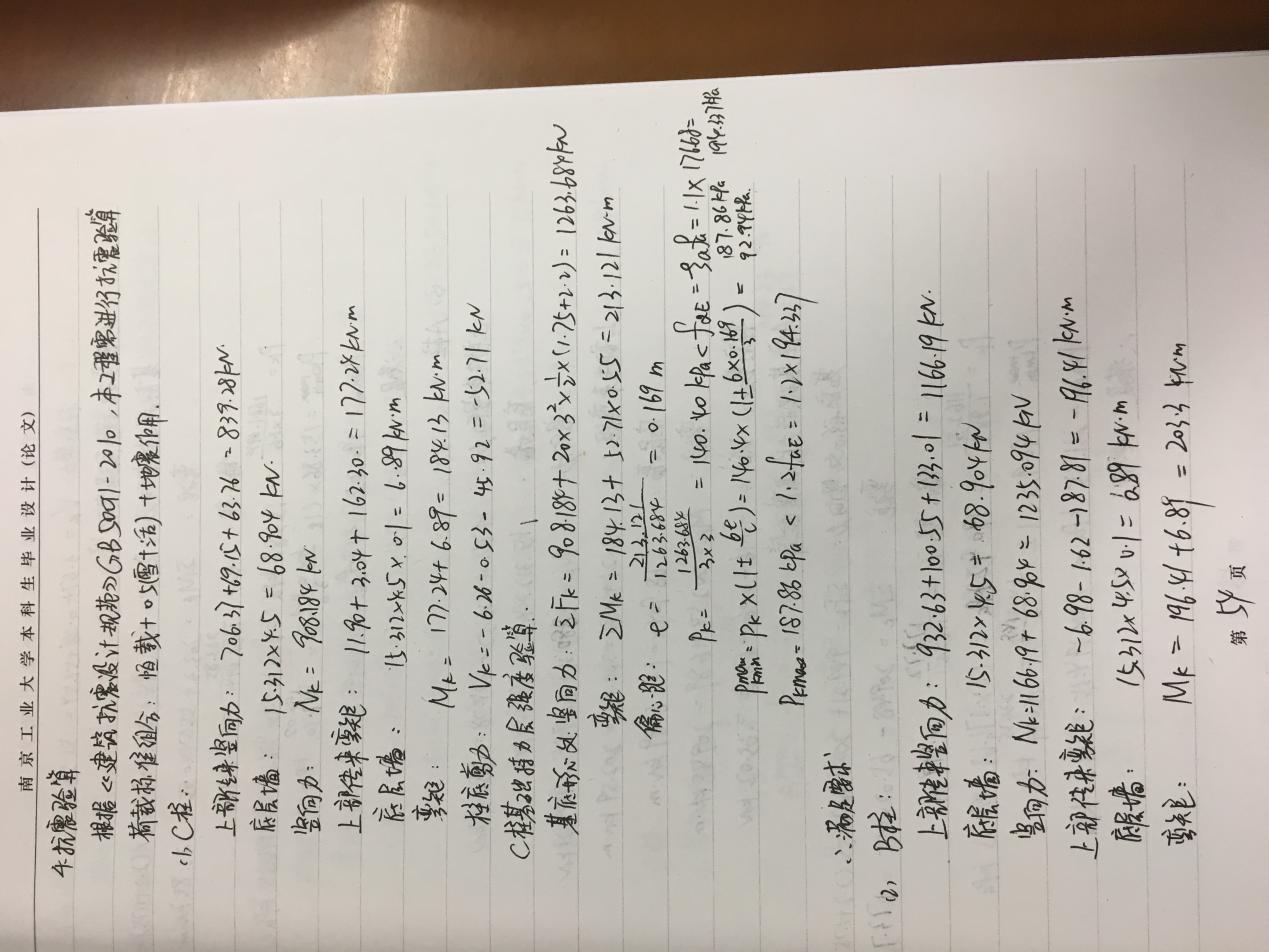 南京工业大学本科生毕业设计(论文)
4.抗震验算
根据《建筑抗震设计规范》GB5001-2010,本工程需进行抗震验算
荷载标准组合:恒载+0.5(雪+活)+地震作用.
(1) C柱:
上部传来竖向力: 706.37+69.15+63.76=839.28kN.
底层墙: 15.312×4.5=68.904kN.
竖向力: Nk=908.184kN
上部传来弯矩: 11.90+3.04+162.30=177.24kN·m
底层墙: 15.312×4.5×0.1=6.89kN·m
弯矩: Mk=177.24+6.89=184.13kN·m
柱底剪力: Vk=-6.26-0.53-45.92=-52.71kN
C柱基础持力层强度验算.
基底形心处竖向力: ΣFk=908.184+20×3²×½×(1.75+2.2)=1263.684kN
弯矩: ΣMk=184.13+52.71×0.55=213.121kN·m
偏心距: e=213.121/1263.684=0.169m
Pk=1263.684/3×3=140.40kPa<faE=ζafa=1.1×176.68=194.337kPa
Pkmax/kmin=Pk×(1±6e/l)=140.4×(1±6×0.169/3)=187.86kPa/92.94kPa.
Pkmax=187.86kPa<1.2faE=1.2×194.337
∴满足要求
(2) B柱:
上部传来竖向力: 932.63+100.55+133.01=1166.19kN.
底层墙: 15.312×4.5=68.904kN
竖向力: Nk=1166.19+68.904=1235.094kN
上部传来弯矩: -6.98-1.62-187.81=-196.41kN·m
底层墙: 15.312×4.5×0.1=6.89kN·m
弯矩: Mk=196.41+6.89=203.3kN·m
第 54 页